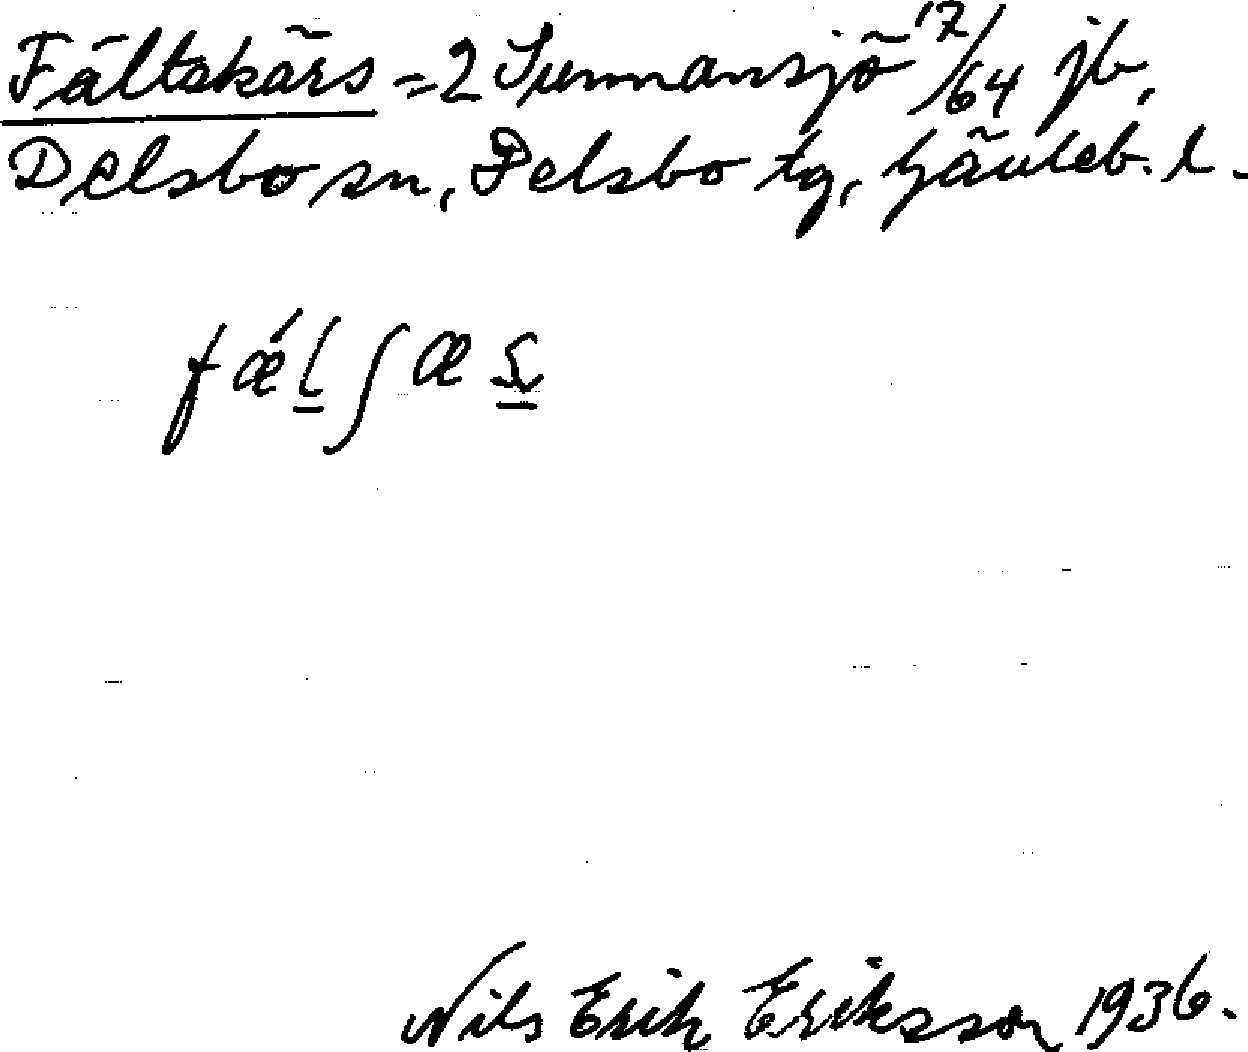 Fältskärs = 2 Sunnansjö 17/64 jb,
Delsbo sn, Delsbo tg, Gävleb. l.
Nils Erik Eriksson 1936.